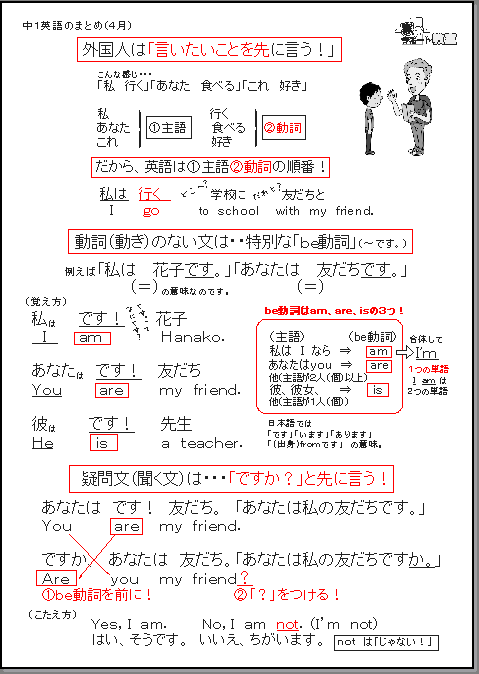 中１英語のまとめ(４月)
外国人は「言いたいことを先に言う！」
こんな感じ・・・
「私　行く」「あなた　食べる」「これ　好き」
私　行く
あなた　①主語　食べる　②動詞
これ　好き
だから、英語は①主語②動詞の順番！
私は　行く　どこへ？　学校に　だれと？　友だちと
I　go　to school　with my friend.
動詞(動き)のない文は・・特別な「be動詞」(～です。)
例えば「私は　花子です。」「あなたは　友だちです。」
(＝)の意味なのです。　(＝)
(覚え方)
私は　です！　花子
I　am　Hanako.
あなたは　です！　友だち
You　are　my friend.
彼は　です！　先生
He　is　a teacher.
be動詞はam、are、isの3つ！
(主語)　(be動詞)
私は I なら ⇒ am
あなたはyou ⇒ are
他(主語が2人(個)以上)
彼、彼女、 ⇒ is
他(主語が1人(個))
合体して
I'm
1つの単語
I am は
2つの単語
日本語では
「です」「います」「あります」
「(出身)fromです」 の意味。
疑問文(聞く文)は・・・「ですか？」と先に言う！
あなたは　です！　友だち。「あなたは私の友だちです。」
You　are　my friend.
ですか。　あなたは　友だち。「あなたは私の友だちですか。」
Are　you　my friend？
①be動詞を前に！　②「？」をつける！
(こたえ方)
Yes, I am.　No, I am not. (I'm not)
はい、そうです。　いいえ、ちがいます。　not は「じゃない！」